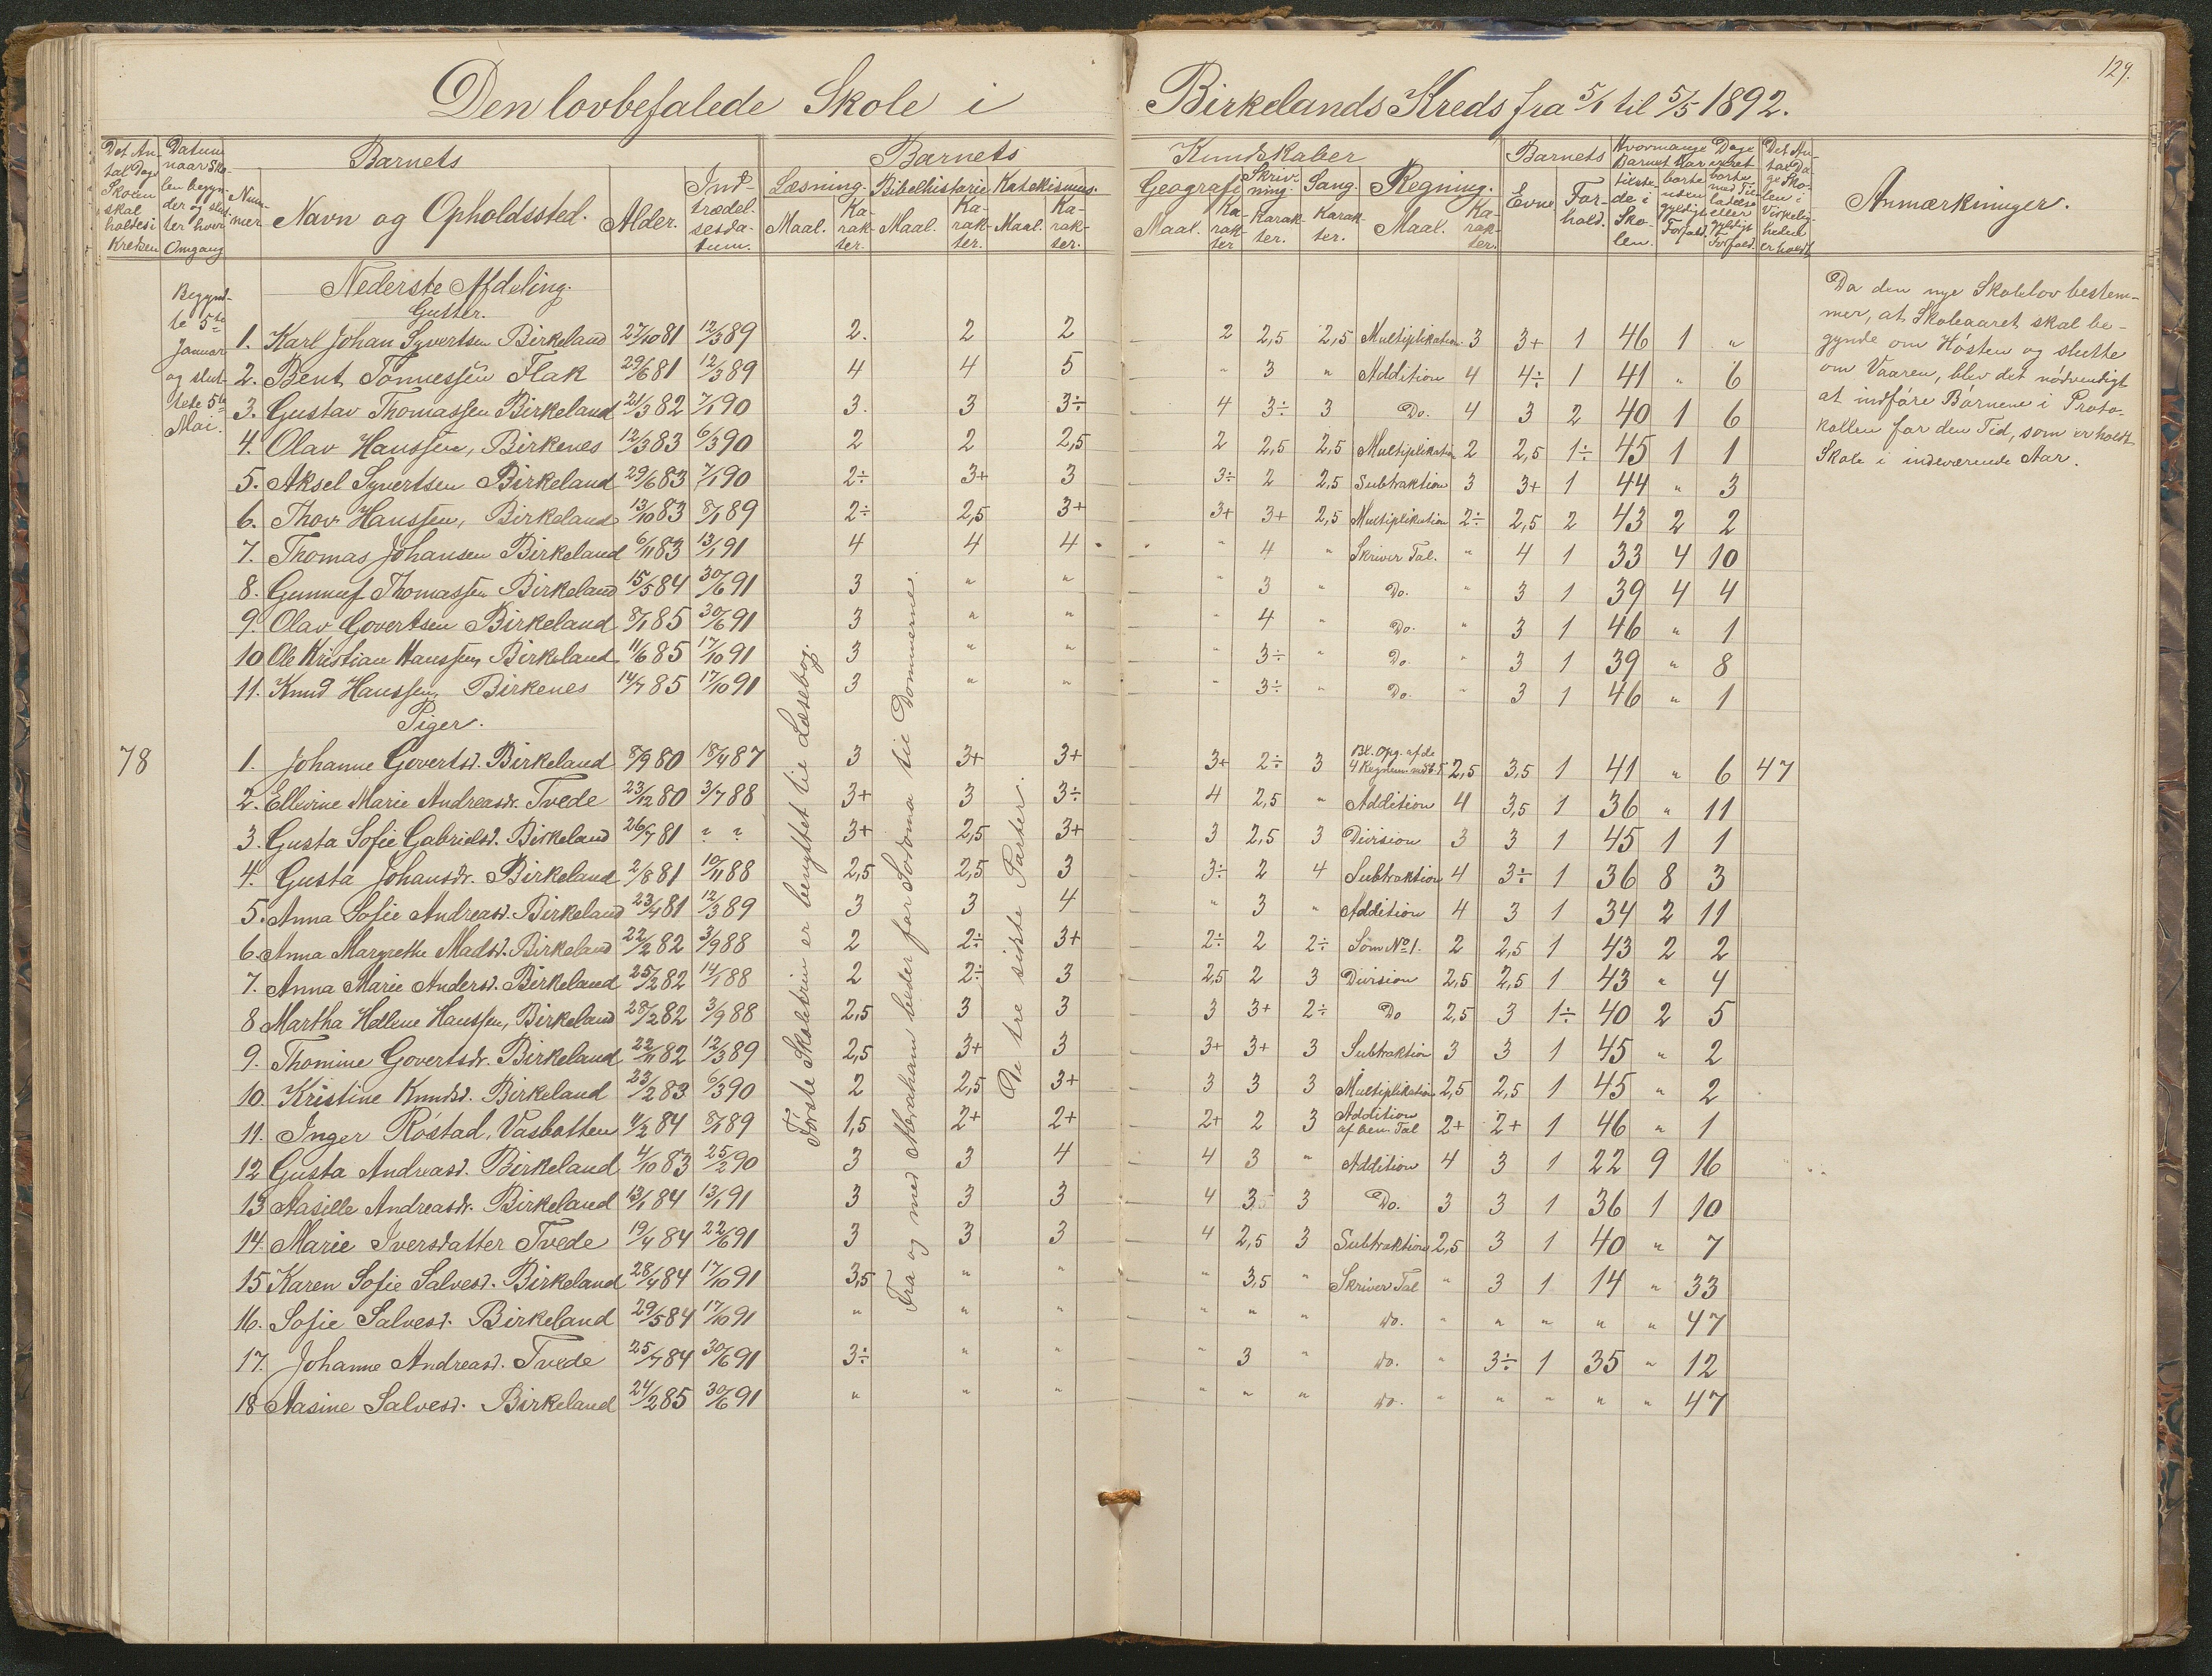 129.
Den lovbefalede Skole i Birkelands Kreds fra 5/1 til 5/5 1892.
Det Antal Dage Skolen skal holdes i Kredsen
Datum naar Skolen begynder og slutter hver Omgang
Nummer
Barnets
Navn og Opholdssted. Alder. Indtrædelsesdatum.
Barnets Kundskaber
Læsning. Bibelhistorie Katekismus. Geografi Skrivning. Sang. Regning.
Maal. Karakter. Maal. Karakter. Maal. Karakter. Maal. Karakter Karakter. Karakter. Maal. Karakter.
Barnets
Evne Forhold.
Hvormange Dage Barnet har været
tilstede i Skolen. borte uden gyldigt Forfald. borte med Tilladelse eller gyldigt Forfald.
Det Antal Dage Skolen i Virkeligheden er holdt
Anmærkninger.
Begyndte 5te Januar og sluttede 5te Mai.
78
Nederste Afdeling.
Gutter.
1. Karl Johan Syvertsen Birkeland 27/10 81 12/3 89 2. 2 2 2 2,5 2,5 Multiplikation 3 3+ 1 46 1 "
2. Bent Tønnessen Flak 29/6 81 12/3 89 4 4 5 " 3 " Addition 4 4÷ 1 41 " 6
3. Gustav Thomassen Birkeland 21/3 82 7/1 90 3. 3 3÷ 4 3÷ 3 Do. 4 3 2 40 1 6
4. Olav Hanssen, Birkenes 12/3 83 6/3 90 2 2 2,5 2 2,5 2,5 Multiplikation 2 2,5 1÷ 45 1 1
5. Aksel Syvertsen Birkeland 29/6 83 7/1 90 2÷ 3+ 3 3÷ 2 2,5 Subtraktion 3 3+ 1 44 " 3
6. Thov Hanssen, Birkeland 13/10 83 8/1 89 2÷ 2,5 3+ 3+ 3+ 2,5 Multiplikation 2÷ 2,5 2 43 2 2
7. Thomas Johansen Birkeland 6/11 83 13/1 91 4 4 4 " 4 " Skriver Tal. " 4 1 33 4 10
8. Gunnuf Thomassen Birkeland 15/5 84 30/6 91 3 " " " 3 " Do. " 3 1 39 4 4
9. Olav Govertsen Birkeland 8/1 85 30/6 91 3 " " " 4 " Do. " 3 1 46 " 1
10 Ole Kristian Hanssen Birkeland 11/6 85 17/10 91 3 " " " 3÷ " Do. " 3 1 39 " 8
11. Knud Hanssen Birkenes 14/7 85 17/10 91 3 " " " 3÷ " Do. " 3 1 46 " 1
Piger.
1. Johanne Govertsd. Birkeland 8/9 80 18/4 87 3 3+ 3+ 3+ 2÷ 3 Bl. Opg. af de 4 Regnem. 2,5 3,5 1 41 " 6 47
2. Ellevine Marie Andreasdr. Tvede 23/12 80 3/7 88 3+ 3 3÷ 4 2,5 " Addition 4 3,5 1 36 " 11
3. Gusta Sofie Gabrielsd. Birkeland 26/7 81 ? ? 3+ 2,5 3+ 3 2,5 3 Division 3 3 1 45 1 1
4. Gusta Johansdr. Birkeland 2/8 81 10/11 88 2,5 2,5 3 3÷ 2 4 Subtraktion 4 3÷ 1 36 8 3
5. Anna Sofie Andreasd. Birkeland 23/4 81 12/3 89 3 3 4 " 3 " Addition 4 3 1 34 2 11
6. Anna Margrethe Madsd. Birkeland 22/2 82 3/9 88 2 2÷ 3+ 2÷ 2 2÷ Som No 1. 2 2,5 1 43 2 2
7. Anna Marie Andersd. Birkeland 25/2 82 14/1 88 2 2÷ 3 2,5 2 3 Division 2,5 2,5 1 43 " 4
8 Martha Hellene Hanssen, Birkeland 28/2 82 3/9 88 2,5 3 3 3 3+ 2÷ Do 2,5 3 1÷ 40 2 5
9. Thomine Govertsdr. Birkeland 22/11 82 12/3 89 2,5 3+ 3 3+ 3+ 3 Subtraktion 3 3 1 45 " 2
10. Kristine Knudsd. Birkeland 23/2 83 6/3 90 2 2,5 3+ 3 3 3 Multiplikation 2,5 2,5 1 45 " 2
11. Inger Røstad, Vasbotten 4/2 84 8/1 89 1,5 2+ 2+ 2+ 2 3 Addition af ben. Tal 2+ 2+ 1 46 " 1
12 Gusta Andreasd. Birkeland 4/10 83 25/2 90 3 3 4 4 3 " Addition 4 3 1 22 9 16
13 Aasille Andreasdr. Birkeland 13/1 84 13/1 91 3 3 3 4 3 3 Do. 3 3 1 36 1 10
14. Marie Iversdatter Tvede 19/4 84 22/6 91 3 3 3 4 2,5 3 Subtraktion 2,5 3 1 40 " 7
15 Karen Sofie Salvesd. Birkeland 28/4 84 17/10 91 3,5 " " " 3,5 " Skriver Tal " 3 1 14 " 33
16. Sofie Salvesd. Birkeland 29/5 84 17/10 91 " " " " " " do. " " " " " 47
17. Johanne Andreasd. Tvede 25/7 84 30/6 91 3÷ " " " 3 " do. " 3÷ 1 35 " 12
18 Aasine Salvesd. Birkeland 24/2 85 30/6 91 " " " " " " do. " " " " " 47
Første Skoletrin er benyttet til Læsebog.
Fra og med Abraham beder for Sodoma til Dommerne.
De tre sidste Parter.
Da den nye Skolelov bestem-
mer, at Skoleaaret skal be-
gynde om Høsten og slutte
om Vaaren, blev det nødvendigt
at indføre Børnene i Proto-
kollen for den Tid, som er holdt
Skole i indeværende Aar.